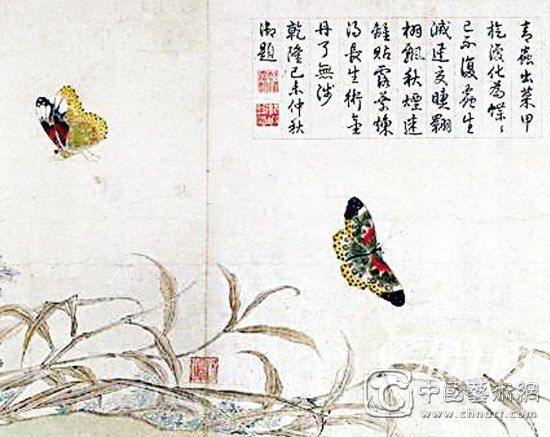 青蟲出菜甲
旋復化為蝶〻
已不復蟲生
滅交睫翾
栩飄秋煙迷
離貼露葉煉
得長生術金
丹了無涉
乾隆己未仲秋
御題
中國藝術網
www.chnart.com